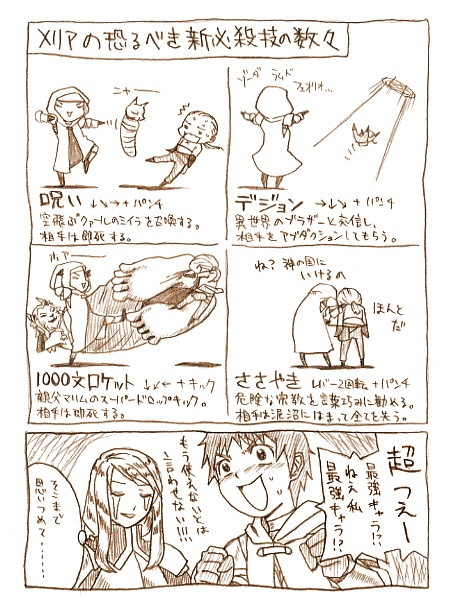 メリアの恐るべき新必殺技の数々
ニャーー
呪い ↓↘→+パンチ
空飛ぶクァールのミイラを召喚する。
相手は即死する。
ゾーダ ラムド
フェオリオ…
デジョン ↓↘→+パンチ
異世界のブラザーと交信し、
相手をアブダクションしてもらう。
1000文ロケット ↓↙←+キック
親父マハムのスーパードロップキック。
相手は即死する。
ね?神の国に
いけるの
ほんと
だ
ささやき レバー2回転+パンチ
危険な宗教を言葉巧みに勧める。
相手は泥沼にはまって全てを失う。
超つえー
最強キャラ!?
ねえ私
最強キャラ!?
もう使えないとは
言わせない!!!
そこまで
思いつめて……